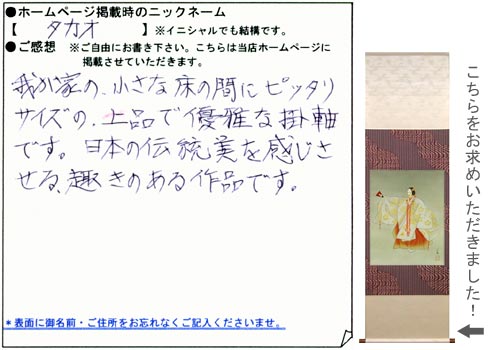 ●ホームページ掲載時のニックネーム
【 タカオ 】※イニシャルでも結構です。
●ご感想 ※ご自由にお書き下さい。こちらは当店ホームページに
掲載させていただきます。
我が家の、小さな床の間にピッタリ
サイズの、上品で優雅な掛軸
です。日本の伝統美を感じさ
せる、趣きのある作品です。
*表面に御名前・ご住所をお忘れなくご記入くださいませ。
こちらをお求めいただきました！